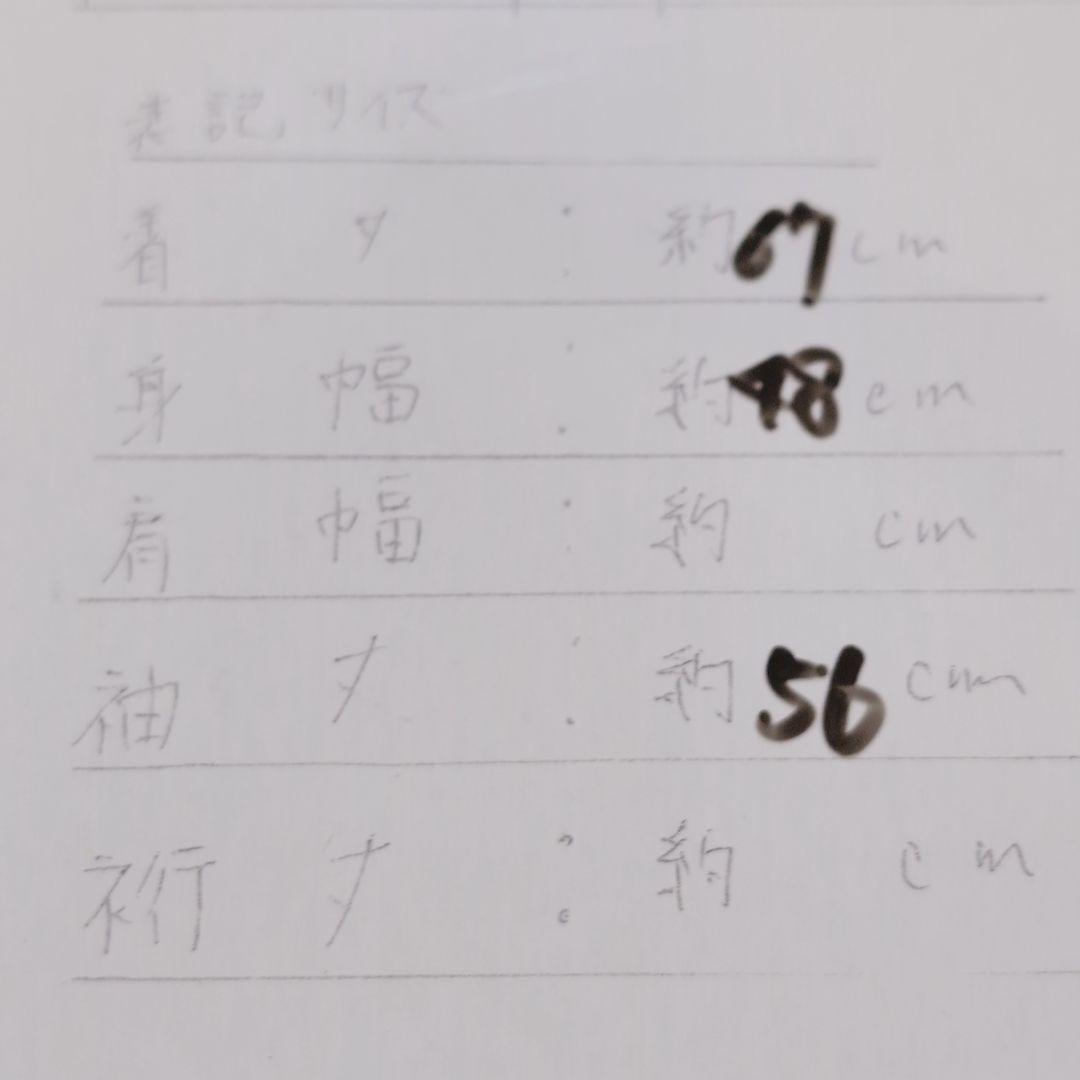 表記サイズ
着 丈 : 約67cm
身 幅 : 約48cm
肩 幅 : 約 cm
袖 丈 : 約56cm
裄 丈 : 約 cm